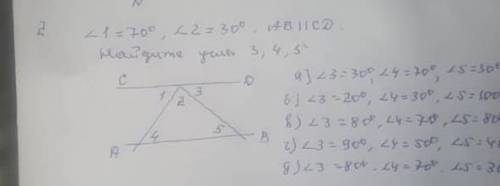 2 ∠1=70°, ∠2=30°. AB||CD.
Найдите углы 3, 4, 5
C D
1 2 3
4 5
A B
а) ∠3=30°, ∠4=70°, ∠5=30°
б) ∠3=20°, ∠4=30°, ∠5=100
в) ∠3=80°, ∠4=70°, ∠5=80
г) ∠3=90°, ∠4=50°, ∠5=4
д) ∠3=80°. ∠4=70°. ∠5=3